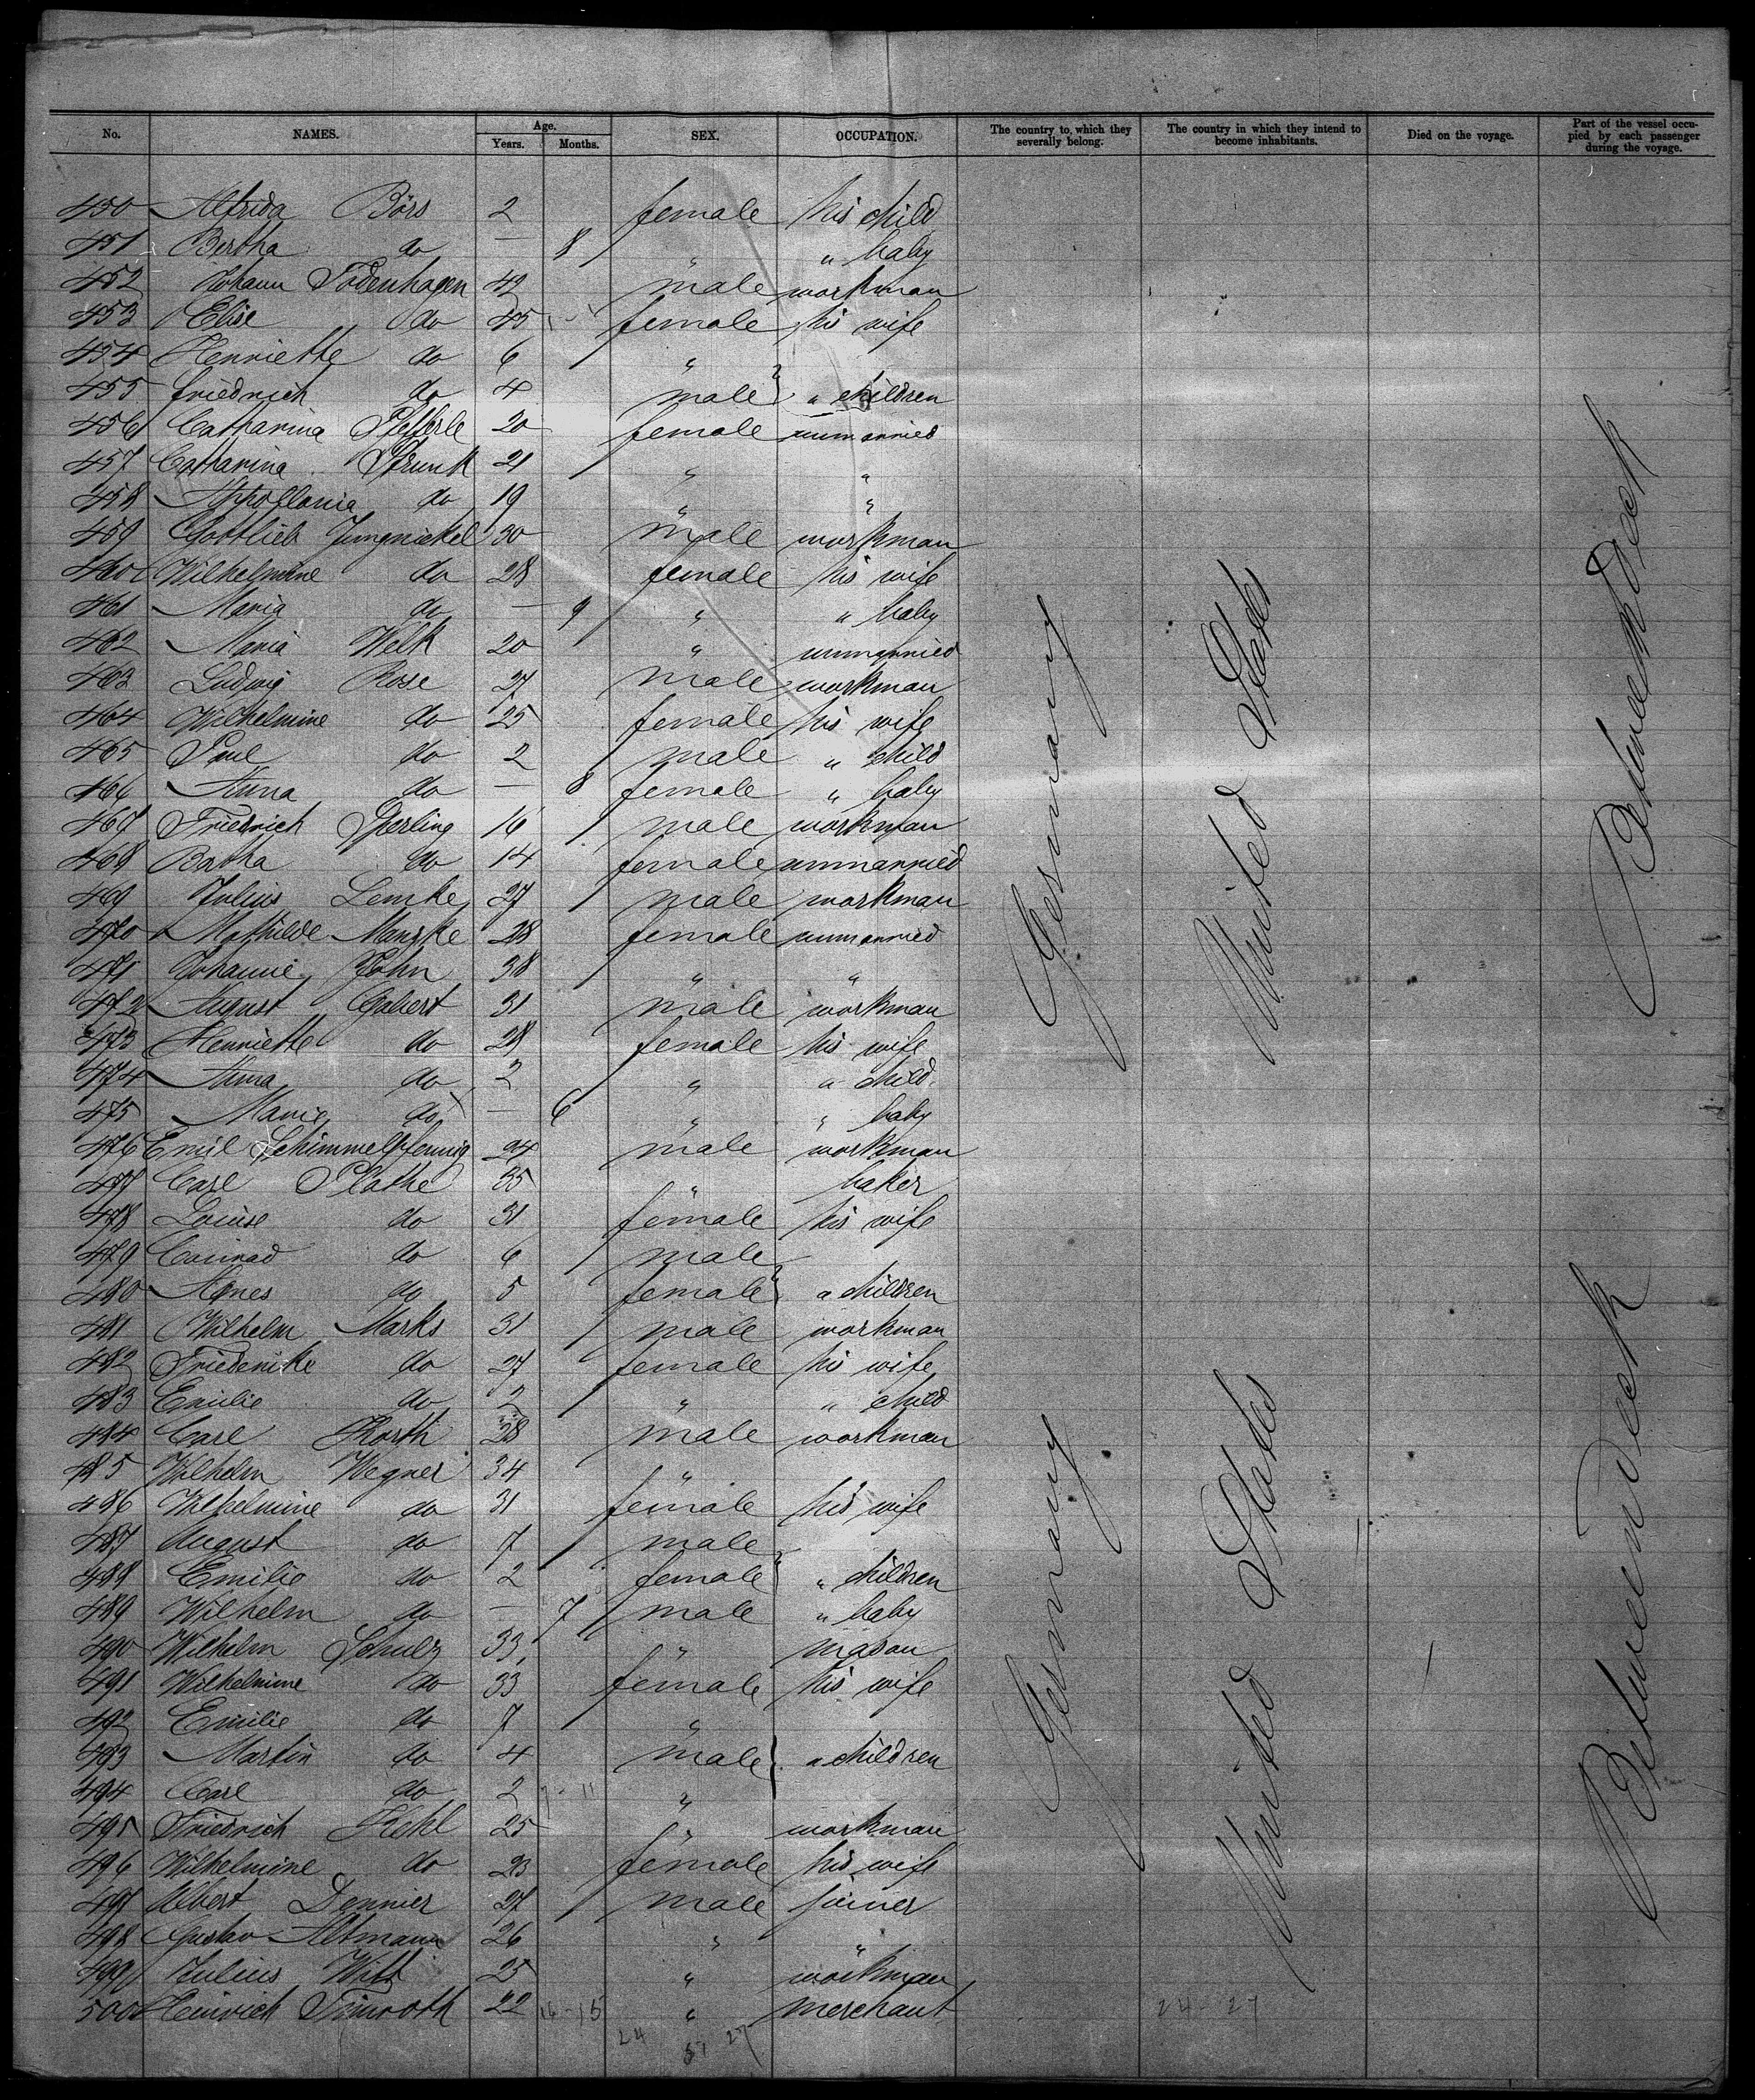 No. NAMES. Age. Years. Months. SEX. OCCUPATION. The country to which they severally belong. The country in which they intend to become inhabitants. Died on the voyage. Part of the vessel occupied by each passenger during the voyage.
450 Alfrida Börs 2 female his child
451 Bertha do — 8 " " baby
452 Johann Todenhagen 42 male workman
453 Elise do 45 female his wife
454 Henriette do 6 "
455 Friedrich do 4 male " children
456 Catharina Pfefferle 20 female unmarried
457 Catharina Strunk 21 " "
458 Appollonia do 19 " "
459 Gottlieb Jungnickel 30 male workman
460 Wilhelmine do 28 female his wife
461 Maria do — 9 " " baby
462 Maria Welk 20 " unmarried
463 Ludwig Rose 27 male workman
464 Wilhelmine do 25 female his wife
465 Paul do 2 male " child
466 Anna do — 8 female " baby
467 Friedrich Sperling 16 male workman
468 Bertha do 14 female unmarried
469 Julius Lemke 27 male workman
470 Mathilde Manzke 28 female unmarried
471 Johanne John 38 " "
472 August Gabert 31 male workman
473 Henriette do 28 female his wife
474 Anna do 2 " " child
475 Marie do — 6 " " baby
476 Emil Schimmelpfennig 24 male workman
477 Carl Plathe 35 " baker
478 Louise do 31 female his wife
479 Conrad do 6 male
480 Agnes do 5 female " children
481 Wilhelm Marks 31 male workman
482 Friederike do 27 female his wife
483 Emilie do 2 " " child
484 Carl Korth 28 male workman
485 Wilhelm Wegner 34 "
486 Wilhelmine do 31 female his wife
487 August do 7 male
488 Emilie do 2 female " children
489 Wilhelm do — 7 male " baby
490 Wilhelm Schulz 33 " mason
491 Wilhelmine do 33 female his wife
492 Emilie do 7 "
493 Martin do 4 male " children
494 Carl do 2 "
495 Friedrich Kehl 25 " workman
496 Wilhelmine do 23 female his wife
497 Albert Dennier 27 male joiner
498 Gustav Altmann 26 " "
499 Julius Witt 25 " workman
500 Heinrich Timroth 22 16-15 " merchant 24-27
24 51 27
Germany
United States
Between Deck
Germany
United States
Between Deck